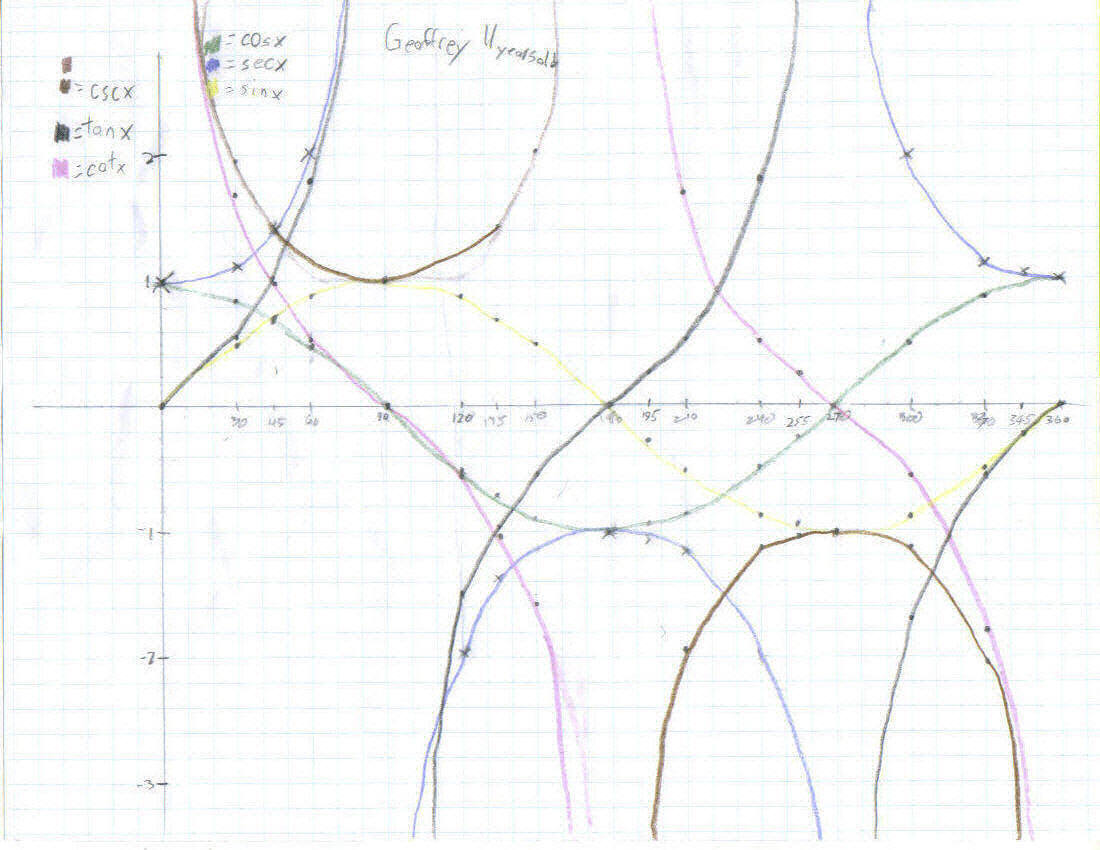 Geoffrey 11 years old
= cosx
= secx
= sinx
= cscx
= tanx
= cotx
2
1
30 45 60 90 120 135 150 180 195 210 240 255 270 300 330 345 360
-1
-2
-3